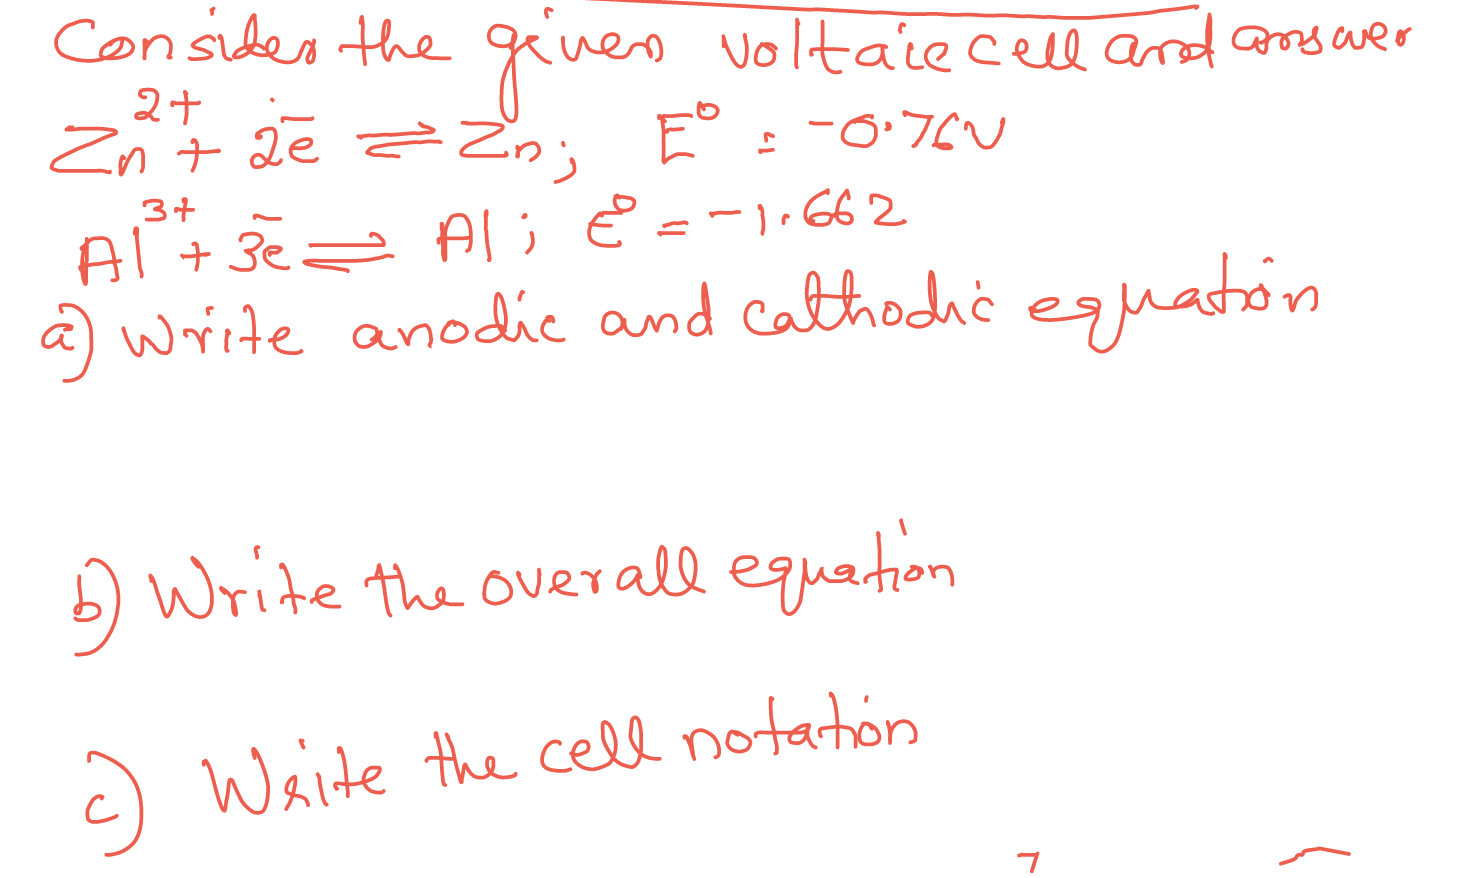 Consider the given voltaic cell and answer
Zn²⁺ + 2e⁻ ⇌ Zn; E⁰ = -0.76V
Al³⁺ + 3e⁻ ⇌ Al; E⁰ = -1.662
a) Write anodic and cathodic equation
b) Write the overall equation
c) Write the cell notation